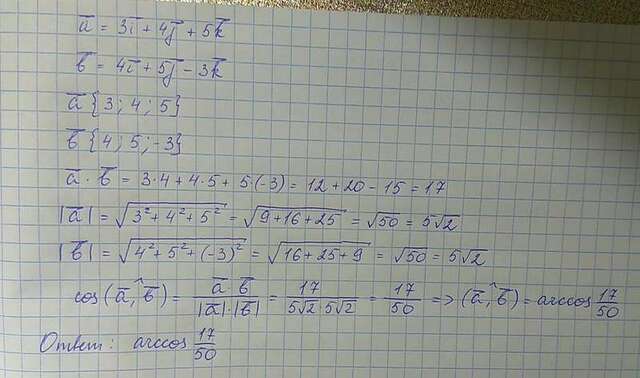 a̅ = 3i̅ + 4j̅ + 5k̅
b̅ = 4i̅ + 5j̅ - 3k̅
a̅ {3; 4; 5}
b̅ {4; 5; -3}
a̅ · b̅ = 3·4 + 4·5 + 5(-3) = 12 + 20 - 15 = 17
|a̅| = √(3² + 4² + 5²) = √(9+16+25) = √50 = 5√2
|b̅| = √(4² + 5² + (-3)²) = √(16+25+9) = √50 = 5√2
cos(a̅,^b̅) = a̅·b̅/|a̅|·|b̅| = 17/5√2·5√2 = 17/50 => (a̅,^b̅) = arccos 17/50
Ответ: arccos 17/50